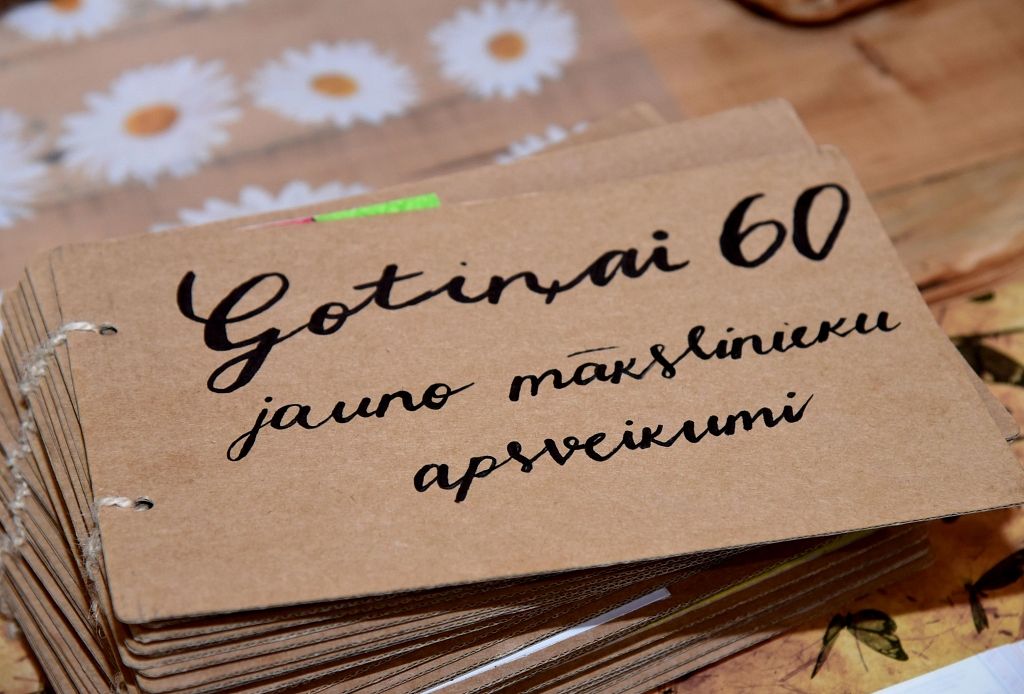 Gotiņai 60
jauno mākslinieku
apsveikumi